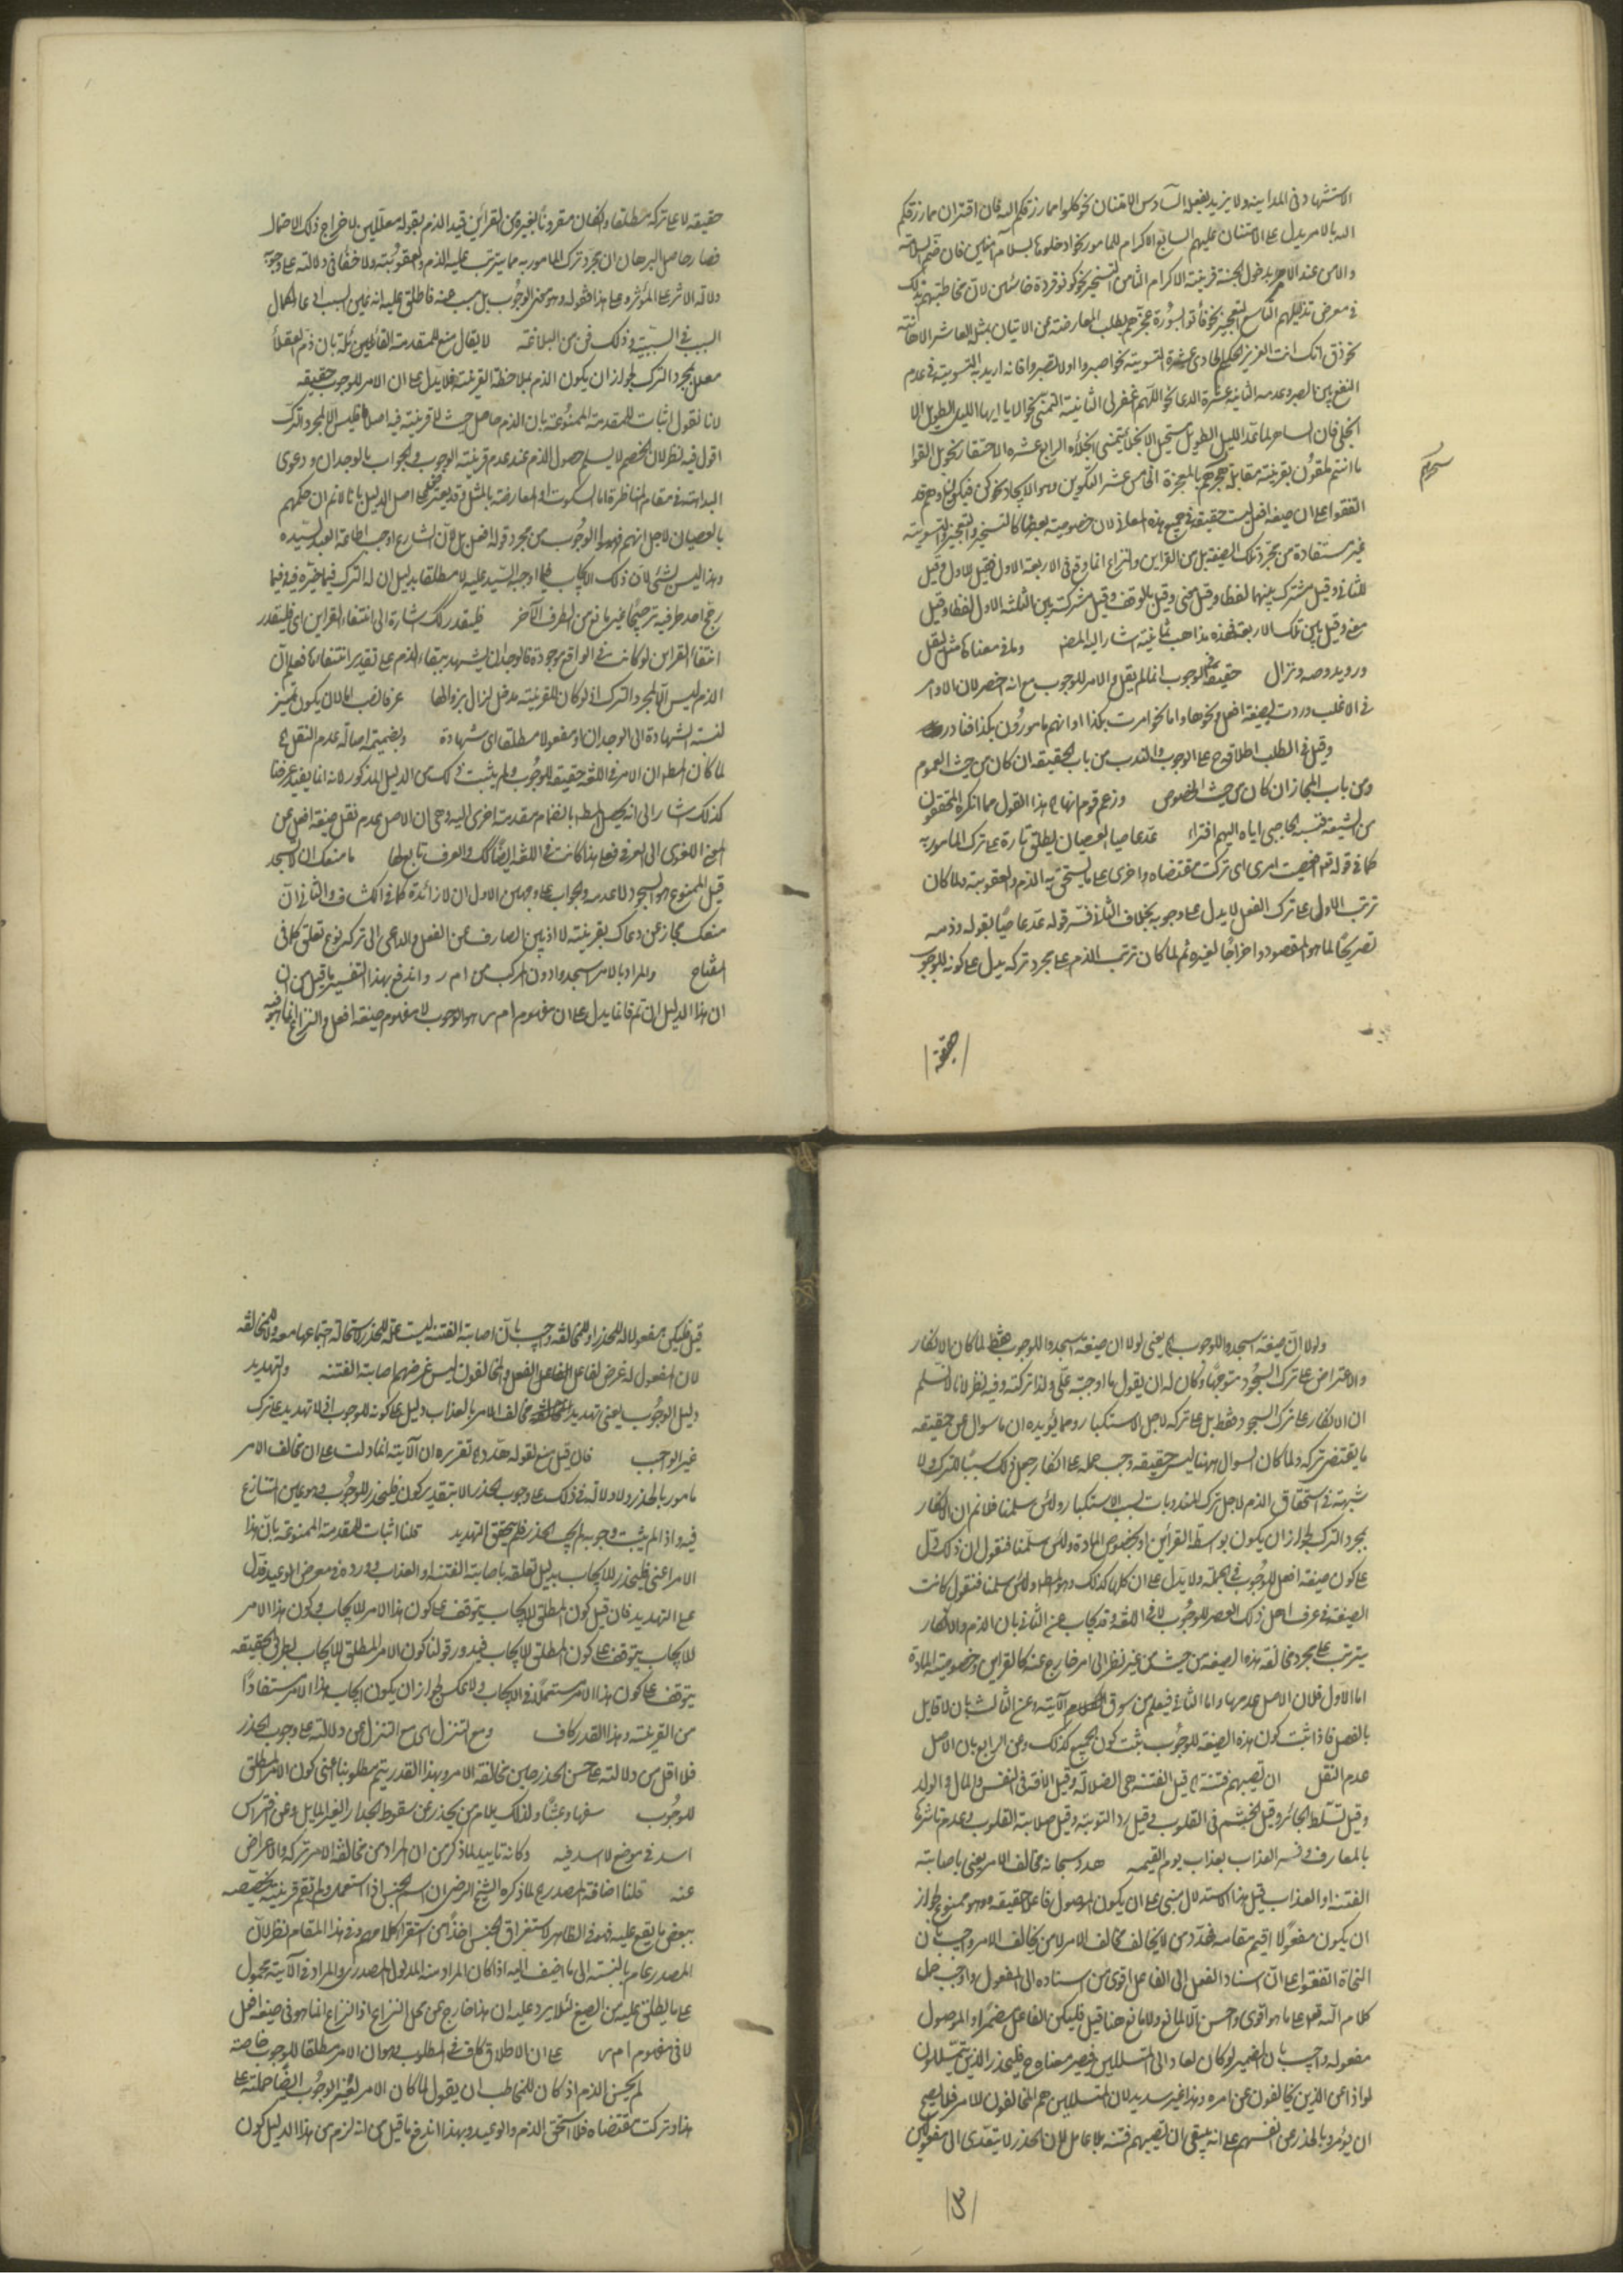 الاستشهاد في المداينة ولا يزيد بفعله السادس الامتنان نحو كلوا مما رزقكم الله فان اقتران مما رزقكم
الله بالامر يدل على الامتنان عليهم السابع الاكرام للمامور نحو ادخلوها بسلام آمنين فان ضم السلامة
والامن عند الامر بدخول الجنة قرينة الاكرام الثامن التسخير نحو كونوا قردة خاسئين لان مخاطبتهم بذلك
في معرض تذليلهم التاسع التعجيز نحو فأتوا بسورة عجزهم بطلب المعارضة عن الاتيان بمثل العاشر الاهانة
نحو ذق انك انت العزيز الحكيم الحادي عشرة التسوية نحو اصبروا او لا تصبروا فانه اريد به التسوية في عدم
النفع بين الصبر وعدمه الثانية عشرة الدعا نحو اللهم اغفر لي الثانية التمني نحو الا يا ايها الليل الطويل الا
انجلي فان الساهر لما عد الليل الطويل مستحيل الانجلاء يتمنى انجلاؤه الرابع عشره الاحتقار نحو بل القوا
ما انتم ملقون بقرينة مقابلة سحرهم بالمعجزة الخامس عشر التكوين وهو الايجاد نحو كن فيكون وهم قد
سحرهم
اتفقوا على ان صيغة افعل ليست حقيقة في جميع هذه المعاني لان خصوصية بعضها كالتسخير والتعجيز والتسوية
غير مستفادة من مجرد تلك الصيغة بل من القراين والنزاع انما وقع في الاربعة الاول فقيل للاول وقيل
للثاني وقيل مشترك بينهما لفظا وقيل معنى وقيل بالوقف وقيل مشتركة بين الثلثة الاول لفظا وقيل
معنى وقيل بين تلك الاربعة فهذه مذاهب ثمانية اشار اليه المص وما في معناها مثل ليفعل
ورويد وصه ونزال حقيقة في الوجوب انما لم يقل والامر للوجوب مع انه اخصر لان الاوامر
في الاغلب وردت بصيغة افعل ونحوها واما نحو امرت بكذا او انهم مامورون بكذا فنادر
وقيل في الطلب اطلاقه ح على الوجوب والندب من باب الحقيقة ان كان من حيث العموم
ومن باب المجاز ان كان من حيث الخصوص وزعم قوم انها هذا القول مما انكره المحققون
من الشيعة فنسبة الحاجبي اياه اليهم افتراء عد عاصيا العصيان يطلق تارة على ترك المامور به
كما في قوله تعم افعصيت امري اي تركت مقتضاه واخرى على ما يستحق به الذم والعقوبة ولما كان
ترتب الاول على ترك الفعل لا يدل على وجوبه بخلاف الثاني فسر قوله عد عاصيا بقوله وذمه
تصريحا لما هو المقصود واخراجا لغيره ثم لما كان ترتب الذم على مجرد تركه يدل على كونه للوجوب
حقيقة
حقيقة لا على تركه مطلقا والكان مقرونا بغيره من القرائن قيد الذم بقوله معللين لاخراج ذلك الاحتمال
فصار حاصل البرهان ان مجرد ترك المامور به مما يترتب عليه الذم والعقوبة ولا خفاء في دلالته على وجوبه
دلالة الاثر على المؤثر وعلى هذا فقوله وهو معنى الوجوب بل مسبب عنه فاطلق عليه انه عين السبب ادعاء لكمال
السبب في السببية وذلك فن من البلاغة لا يقال منع للمقدمة القائلة بان ذم العقلاء
معلل بمجرد الترك لجواز ان يكون الذم بملاحظة القرينة فلا يدل على ان الامر للوجوب حقيقة
لانا نقول اثبات للمقدمة الممنوعة بان الذم حاصل حيث لا قرينة فيه اصلا فليس الا لمجرد الترك
اقول فيه نظر لان الخصم لا يسلم حصول الذم عند عدم قرينة الوجوب والجواب بالوجدان ودعوى
البداهة في مقام المناظرة اما السكوت او المعارضة بالمثل وقد يعترض على اصل الدليل بانا لانم ان حكمهم
بالعصيان لاجل انهم فهموا الوجوب من مجرد قوله افعل بل لان الشارع اوجب اطاعة العبد لسيده
وهذا ليس بشئ لان ذلك الايجاب فيما اوجبه السيد عليه لا مطلقا بدليل ان له الترك فيما خيره وفيما
رجح احد طرفيه ترجيحا غير مانع من الطرف الآخر فليقدر كك اشارة الى انتفاء القراين اي فليقدر
انتفاء القراين لو كانت في الواقع موجودة فالوجدان ليشهد ببقاء الذم على تقدير انتفائها فعلم ان
الذم ليس الا لمجرد الترك اذ لو كان للقرينة مدخل لزال بزوالها عرفا نصب اما لان يكون تمييز
لنسبة الشهادة الى الوجدان او مفعولا مطلقا اي شهادة وبضميمة اصالة عدم النقل
لما كان المط ان الامر في اللغة حقيقة للوجوب ولم يثبت ذلك من الدليل المذكور لانه انما يفيد عرفا
كذلك اشار الى انه يحصل المط بانضمام مقدمة اخرى اليه وهي ان الاصل عدم نقل صيغة افعل عن
المعنى اللغوي الى العرفي فعلى هذا كانت في اللغة ايضا كك والعرف تابع لها ما منعك ان لا تسجد
قيل الممنوع هو السجود لا عدمه والجواب على وجهين الاول ان لا زائدة كما في الكشاف والثاني ان
منعك مجاز عن دعاك بقرينة لا اذ بين الصارف عن الفعل والداعي الى تركه نوع تعلق كما في
المفتاح والمراد بالامر اسجدوا دون المركب من ا م ر واندفع بهذا التفسير ما قيل من ان
ان هذا الدليل ان تم فانما يدل على ان مفهوم ا م ر هو الوجوب لا مفهوم صيغة افعل والنزاع انما هو فيه
ولولا ان صيغة اسجدوا للوجوب يعني لولا ان صيغة اسجدوا للوجوب فقط لما كان الانكار
والاعتراض على ترك السجود متوجها وكان له ان يقول ما اوجبته علي ولذا تركته وفيه نظر لانا لا نسلم
ان الانكار على ترك السجود فقط بل على تركه لاجل الاستكبار ومما يؤيده ان ما سوال عن حقيقة
ما يقتضي تركه ولما كان السوال ههنا ليس حقيقة وجب حمله على انكار جعل ذلك سببا للترك ولا
شبهة في استحقاق الذم لاجل ترك المندوبات بسبب الاستكبار ولئن سلمنا فلا نم ان الانكار
بمجرد الترك لجواز ان يكون بواسطة القراين او بخصوص المادة ولئن سلمنا فنقول ان ذلك دل
على كون صيغة افعل للوجوب في الجملة ولا يدل على ان كلها كذلك وهو المط ولئن سلمنا فنقول كانت
الصيغة في عرف اهل ذلك العصر للوجوب لا في اللغة وقد يجاب عن الثاني بان الذم والانكار
يترتب على مجرد مخالفة هذه الصيغة من حيث هي من غير نظر الى امر خارج عنه كالقراين وخصوصية المادة
اما الاول فلان الاصل عدمها واما الثاني فيعلم من سوق الآية وعن الثالث بان لا قايل
بالفصل فاذا ثبت كون هذه الصيغة للوجوب ثبت كون الجميع كذلك وعن الرابع بان الاصل
عدم النقل ان تصيبهم فتنة قيل الفتنة هي الضلالة وقيل الآفة في النفس والمال والولد
وقيل تسلط الجائر وقيل الختم في القلوب وقيل رد التوبة وقيل صلابة القلوب وعدم تاثرها
بالمعارف وفسر العذاب بعذاب يوم القيمة هدد سبحانه مخالف الامر يعني باصابة
الفتنة او العذاب قيل هذا الاستدلال مبني على ان يكون الموصول فاعلا حقيقة وهو ممنوع لجواز
ان يكون مفعولا اقيم مقامه فهدد من لا يخالف مخالف الامر لا من يخالف الامر واجيب بان
النحاة اتفقوا على ان اسناد الفعل الى الفاعل اقوى من اسناده الى المفعول واوجب حمل
كلام الله تعم على ما هو اقوى واحسن الا لمانع ولا مانع هنا قيل فليكن الفاعل مضمرا والموصول
مفعوله واجيب بان المضمر لو كان لعاد الى المتسللين فيصير معناه ح فليحذر الذين يتسللون
لواذا عن الذين يخالفون عن امره وهذا غير سديد لان المتسللين هم المخالفون للامر فلا يصح
ان يؤمروا بالحذر عن انفسهم على انه يبقى ان تصيبهم فتنة بلا عامل لان الحذر لا يتعدى الى مفعولين
٣
قيل فليكن مفعولا له للحذر او للمخالفة واجيب بان اصابة الفتنة ليست علة للحذر لاستحالة اجتماعها معه ولا للمخالفة
لان المفعول له غرض لفاعل الفعل والمخالفون ليس غرضهم اصابة الفتنة والتهديد
دليل الوجوب يعني تهديد مخالف الامر بالعذاب دليل على كونه للوجوب اذ لا تهديد على ترك
غير الواجب فان قيل منع لقوله هدد تقريره ان الآية انما دلت على ان مخالف الامر
مامور بالحذر ولا دلالة في ذلك على وجوب الحذر الا بتقدير كون فليحذر للوجوب وهو عين المتنازع
فيه واذا لم يثبت وجوبه لم يجب الحذر فلم يتحقق التهديد قلنا اثبات للمقدمة الممنوعة بان هذا
الامر اعني فليحذر للايجاب بدليل تعلقه باصابة الفتنة او العذاب ووروده في معرض الوعيد فدل
على التهديد فان قيل كون المطلق للايجاب يتوقف على كون هذا الامر للايجاب وكون هذا الامر
للايجاب يتوقف على كون المطلق للايجاب فيدور قولنا كون الامر المطلق للايجاب بطريق الحقيقة
يتوقف على كون هذا الامر مستعملا في الايجاب ولا عكس لجواز ان يكون ايجاب هذا الامر مستفادا
من القرينة وهذا القدر كاف ومع التنزل اي مع التنزل عن دلالته على وجوب الحذر
فلا اقل من دلالته على حسن الحذر حين مخالفة الامر وبهذا القدر يتم مطلوبنا اعني كون الامر المطلق
للوجوب سفها وعبثا ولذلك يلام من يحذر عن سقوط الجدار الغير المايل وعن افتراس
اسد في موضع لا اسد فيه وكانه تاييد لما ذكر من ان المراد من مخالفة الامر تركه والاعراض
عنه قلنا اضافة المصدر لما ذكره الشيخ الرضي ان اسم الجنس اذا استعمل ولم تقم قرينة تخصصه
ببعض ما يقع عليه فهو في الظاهر لاستغراق الجنس اخذا من استقراء كلامهم وفي هذا المقام نظر لان
المصدر عام بالنسبة الى ما اضيف اليه اذا كان المراد منه المدلول المصدري والمراد في الآية محمول
على ما يطلق عليه من الصيغ لئلا يرد عليه ان هذا خارج عن محل النزاع اذ النزاع انما هو في صيغة افعل
لا في مفهوم ا م ر على ان الاطلاق كاف في المطلوب وهو ان الامر مطلقا للوجوب خاصة
لم يحسن الذم اذ كان للمخاطب ان يقول لما كان الامر لغير الوجوب ايضا حملته على
هذا وتركت مقتضاه فلا استحق الذم والوعيد وبهذا اندفع ما قيل من انه لزم من هذا الدليل كون